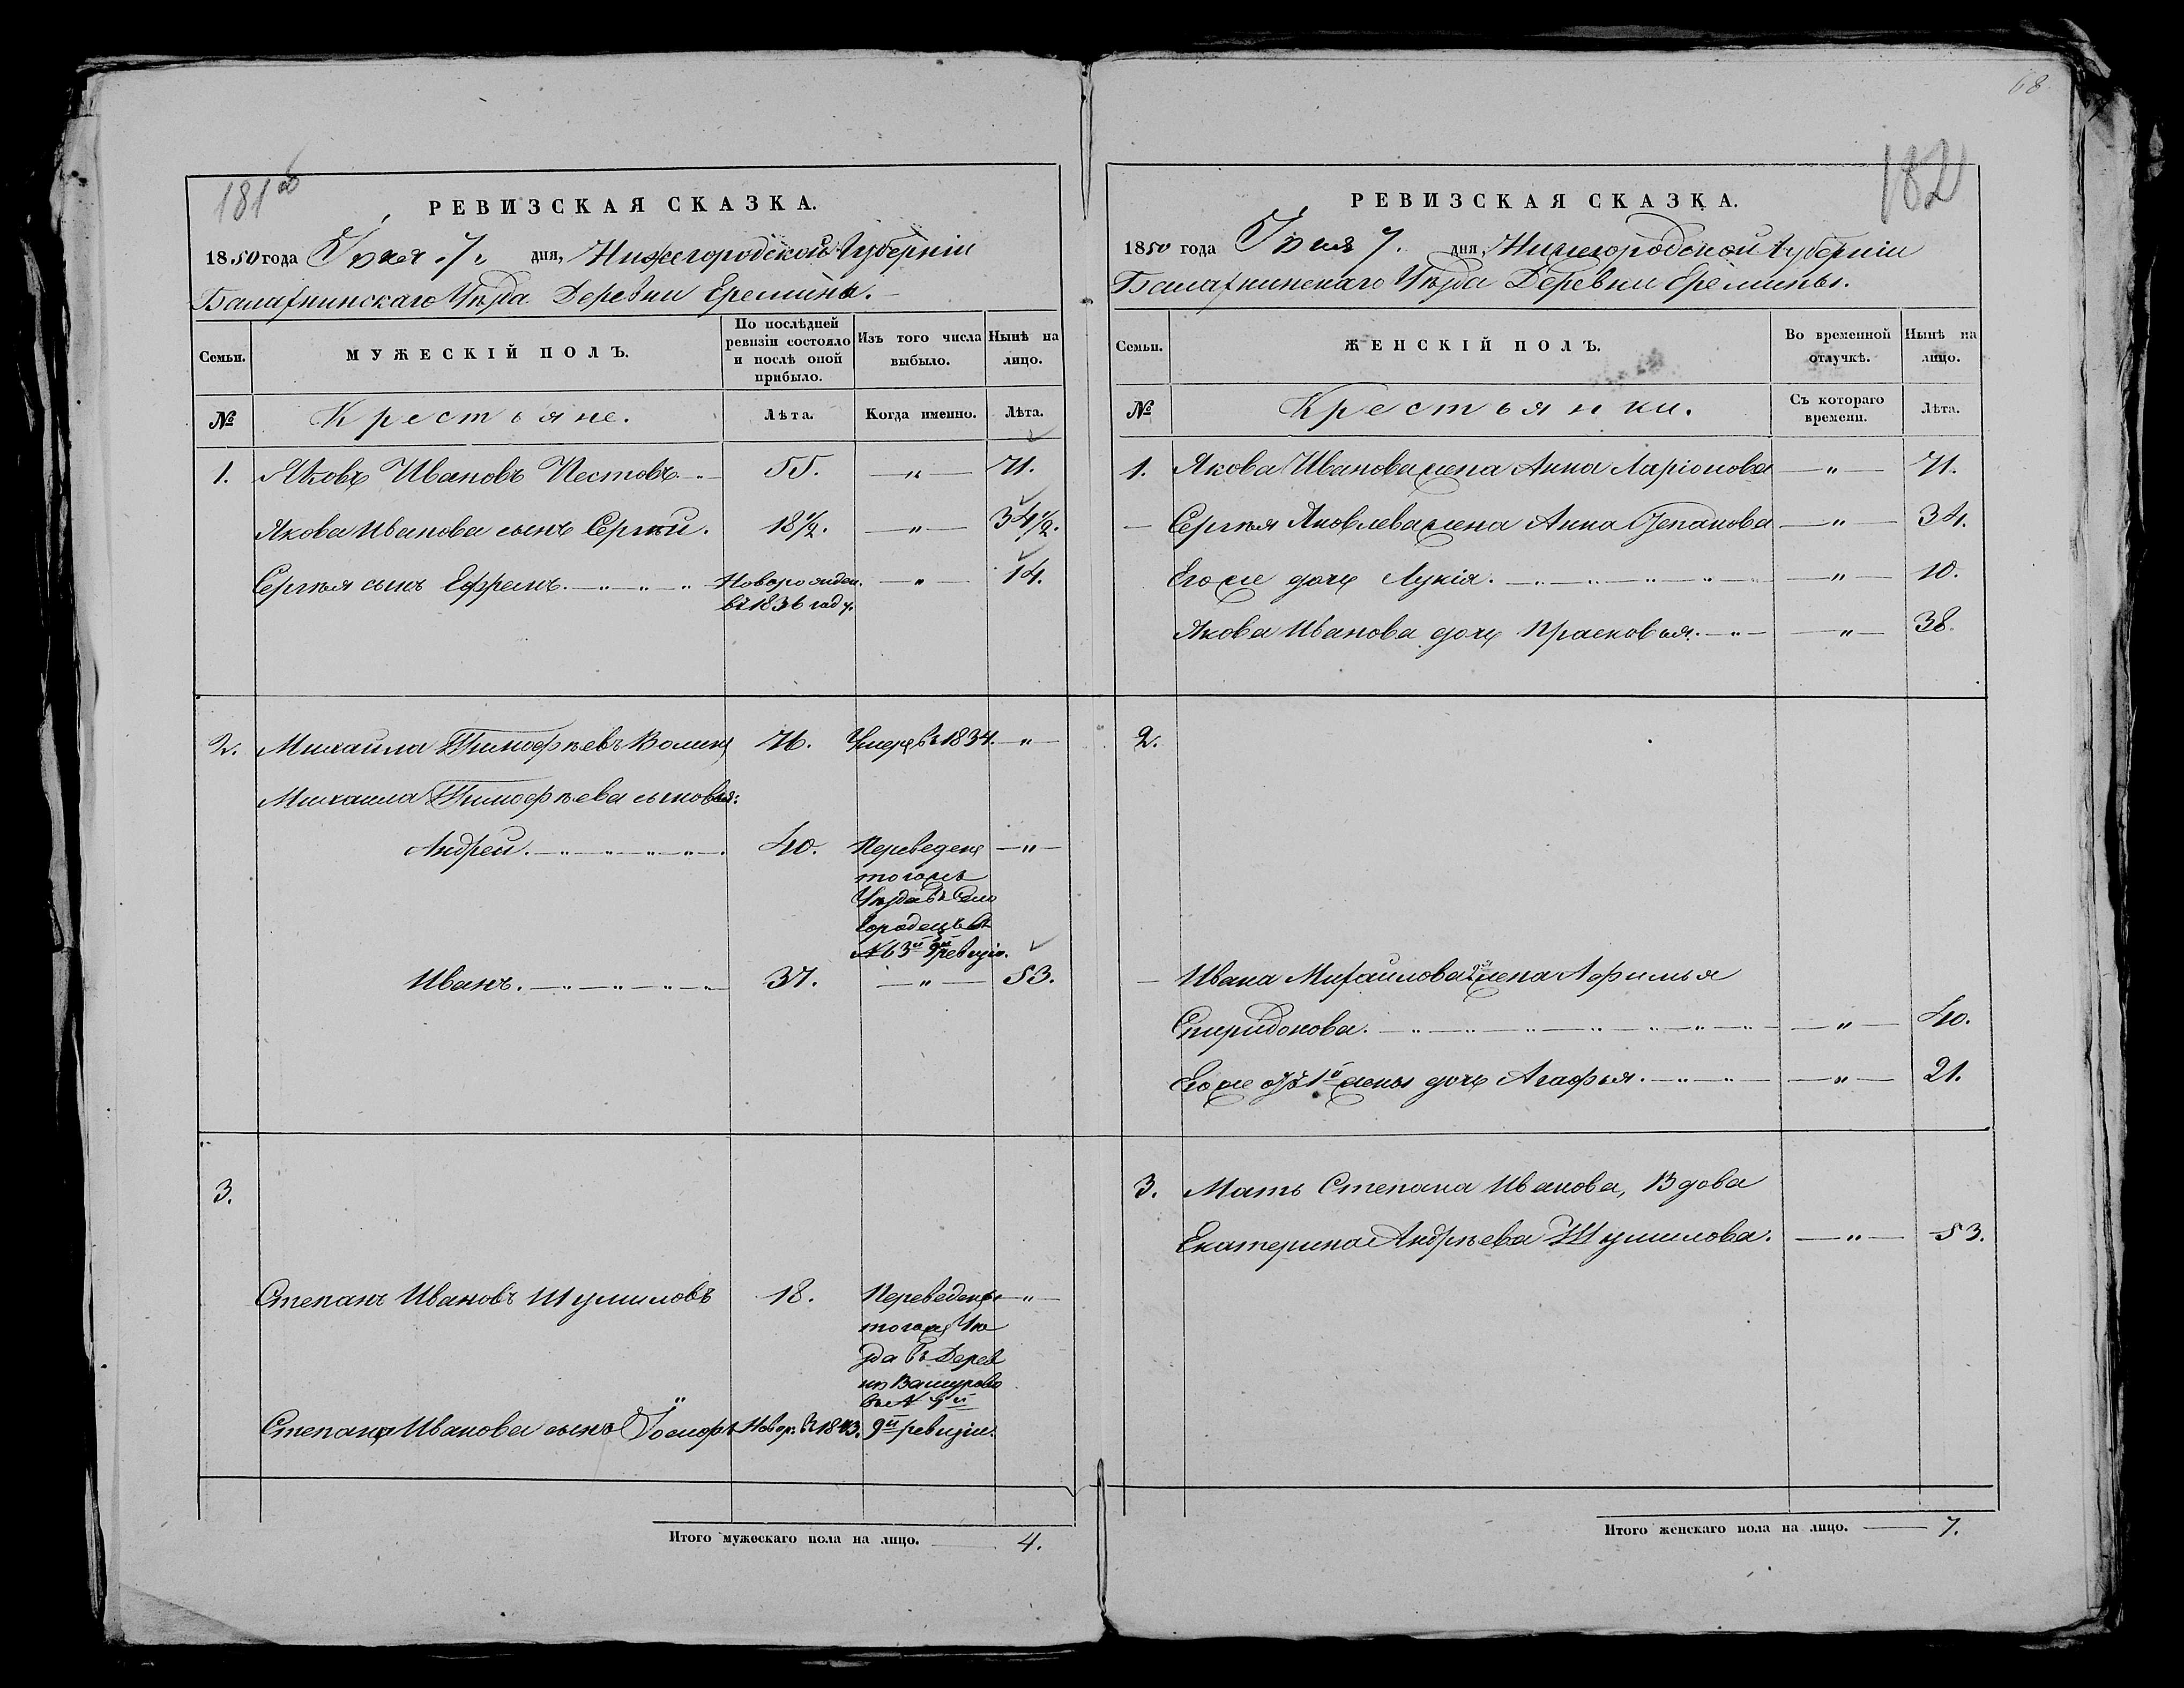 181 об
РЕВИЗСКАЯ СКАЗКА.
1850 года Іюня 7. дня, Нижегородской Губерніи
Балахнинскаго Уѣзда Деревни Еремины.
Семьи.
МУЖЕСКІЙ ПОЛЪ.
По послѣдней
ревизіи состояло
и послѣ оной
прибыло.
Изъ того числа
выбыло.
Нынѣ на
лицо.
№ Крестьяне. Лѣта. Когда именно. Лѣта.
1. Яковъ Ивановъ Пестовъ. 55. — " — 71.
Якова Иванова сынъ Сергѣй. 18½. — " — 34½.
Сергѣя сынъ Ефремъ. Новорожден. — " — 14.
въ 1836 году.
2. Михайла Тимофѣевъ 76. Умеръ въ 1834. — " —
Михаила Тимофѣева сыновья:
Андрей. 40. Переведенъ — " —
тогожъ
Уѣзда въ Село
Городецъ въ
№ 63й 9й ревизіи.
Иванъ. 37. — " — 53.
3.
Степанъ Ивановъ Шумиловъ 18. Переведены — " —
тогожъ Уѣ
зда въ Дерев
ню
въ №
Степана Иванова сынъ Іосифъ Новор. въ 1843. 9й ревизіи.
Итого мужескаго пола на лицо. — 4.
68
182
РЕВИЗСКАЯ СКАЗКА.
1850 года Іюня 7. дня, Нижегородской Губерніи
Балахнинскаго Уѣзда Деревни Еремины.
Семьи.
ЖЕНСКІЙ ПОЛЪ.
Во временной
отлучкѣ.
Нынѣ на
лицо.
№ Крестьянки. Съ котораго
времени.
Лѣта.
1. Якова Иванова жена Анна Ларіонова — " — 71.
— Сергѣя Яковлева жена Анна Степанова — " — 34.
Егоже дочь Лукія. — " — 10.
Якова Иванова дочь Прасковья. — " — 38.
2.
— Ивана Михайлова 2я жена Афимья
Спиридонова. — " — 40.
Егоже отъ 1й жены дочь Агафья. — " — 21.
3. Мать Степана Иванова, Вдова
Екатерина Андрѣева Шумилова. — " — 53.
Итого женскаго пола на лицо. — 7.